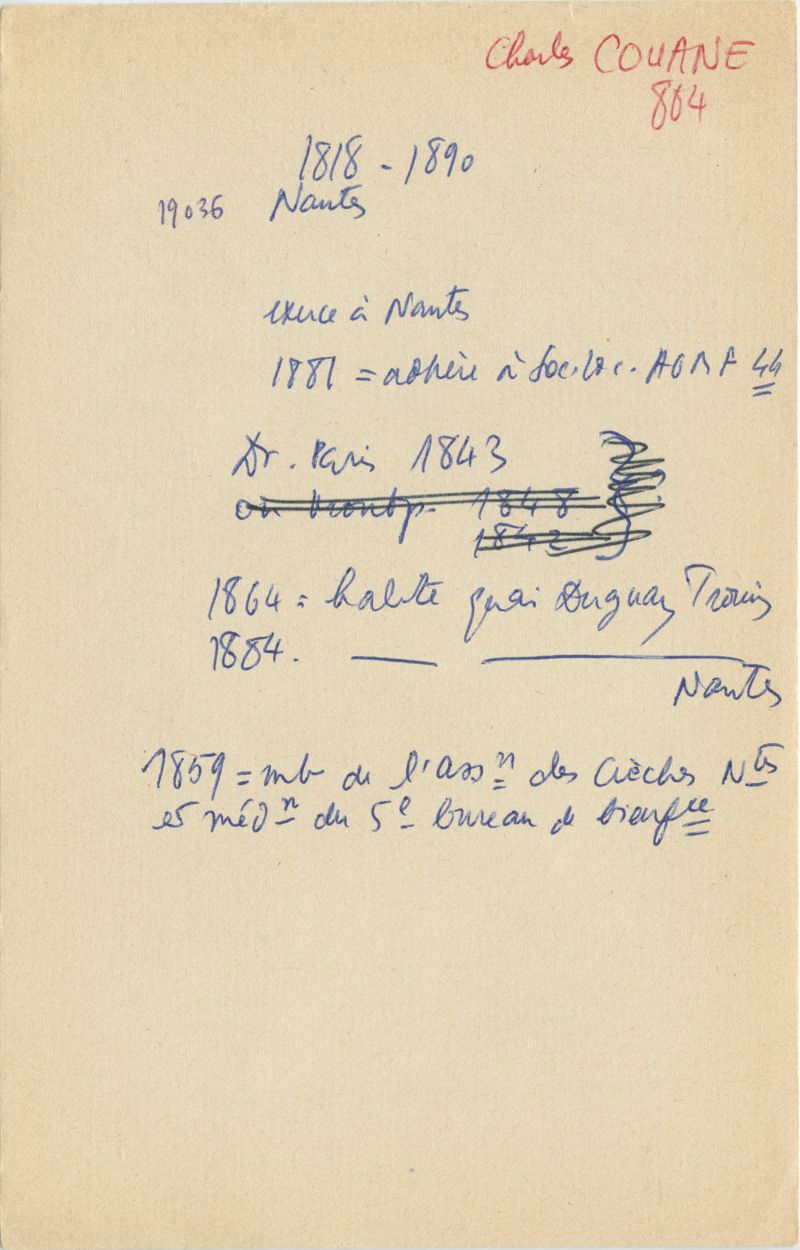 Charles COUANE
864
1818 - 1890
19036 Nantes
exerce à Nantes
1881 = adhère à Soc. loc. AGMF 44
Dr. Paris 1843
ou Montp. 1848
1842
1864 = habite quai Duguay Trouin
1884. — —
Nantes
1859 = mb de l'assn des Crèches Ntes
et médn du 5e bureau de bienfce